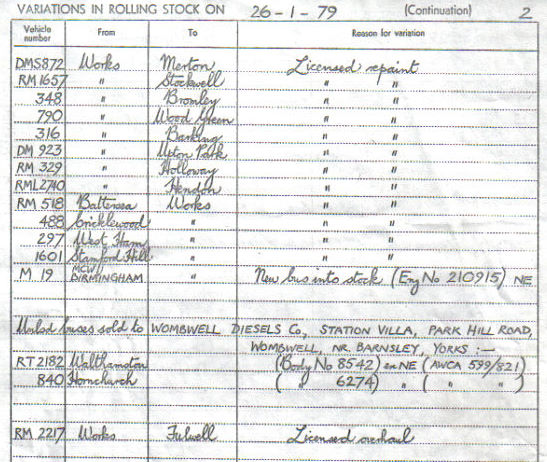 VARIATIONS IN ROLLING STOCK ON 26-1-79 (Continuation) 2
Vehicle number From To Reason for variation
DMS872 Works Merton Licensed repaint
RM1657 " Stockwell " "
348 " Bromley " "
790 " Wood Green " "
316 " Barking " "
DM 923 " Upton Park " "
RM 329 " Holloway " "
RML2740 " Hendon " "
RM 518 Battersea Works " "
488 Cricklewood " " "
297 West Ham " " "
1601 Stamford Hill " " "
M 19 MCW BIRMINGHAM " New bus into stock (Eng No 210915) NE
Unlsd buses sold to WOMBWELL DIESELS Co, STATION VILLA, PARK HILL ROAD,
WOMBWELL, NR. BARNSLEY, YORKS :—
RT2182 Walthamstow (Body No 8542) ex NE (AWCA 599/821)
840 Hornchurch ( " 6274) " ( " " )
RM 2217 Works Fulwell Licensed overhaul